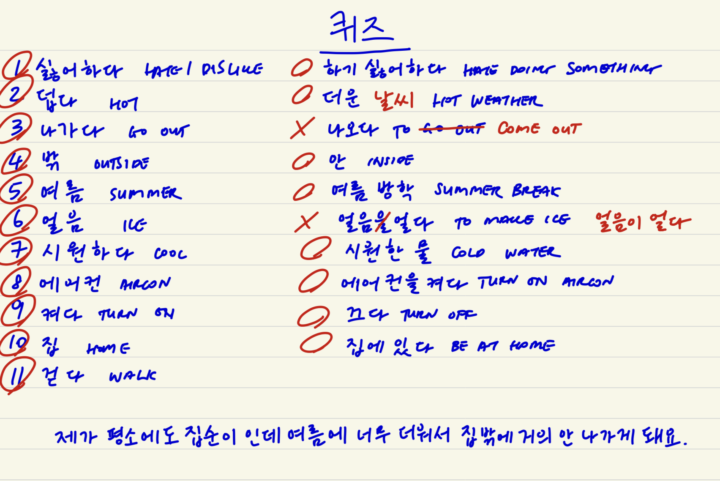 퀴즈
1 싫어하다 HATE / DISLIKE ○ 하기 싫어하다 HATE DOING SOMETHING
2 덥다 HOT ○ 더운 날씨 HOT WEATHER
3 나가다 GO OUT X 나오다 TO GO OUT COME OUT
4 밖 OUTSIDE ○ 안 INSIDE
5 여름 SUMMER ○ 여름 방학 SUMMER BREAK
6 얼음 ICE X 얼음을얼다 TO MAKE ICE 얼음이 얼다
7 시원하다 COOL ○ 시원한 물 COLD WATER
8 에어컨 AIRCON ○ 에어컨을 켜다 TURN ON AIRCON
9 켜다 TURN ON ○ 끄다 TURN OFF
10 집 HOME ○ 집에 있다 BE AT HOME
11 걷다 WALK
제가 평소에도 집순이 인데 여름에 너무 더워서 집밖에 거의 안 나가게 돼요.